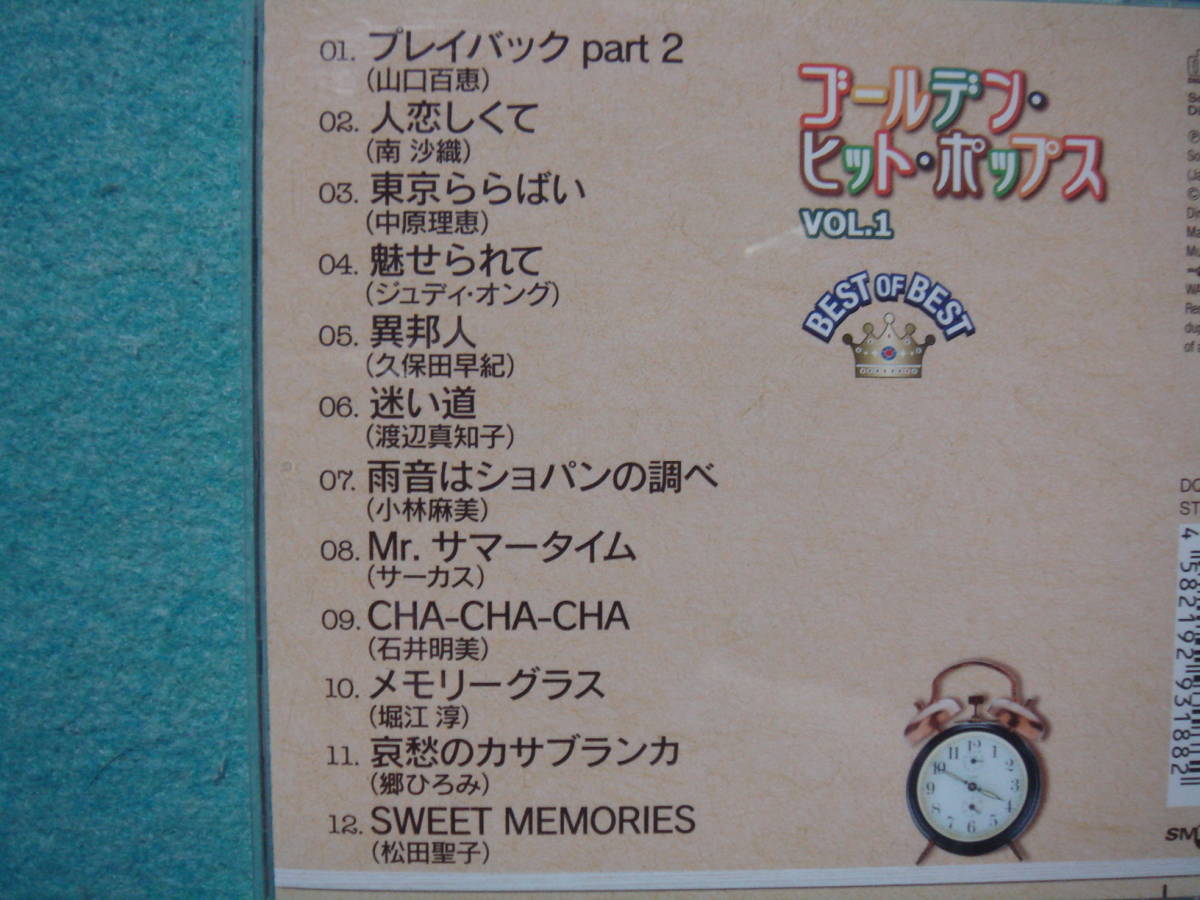 01. プレイバック part 2
(山口百恵)
02. 人恋しくて
(南 沙織)
03. 東京ららばい
(中原理恵)
04. 魅せられて
(ジュディ・オング)
05. 異邦人
(久保田早紀)
06. 迷い道
(渡辺真知子)
07. 雨音はショパンの調べ
(小林麻美)
08. Mr. サマータイム
(サーカス)
09. CHA-CHA-CHA
(石井明美)
10. メモリーグラス
(堀江 淳)
11. 哀愁のカサブランカ
(郷ひろみ)
12. SWEET MEMORIES
(松田聖子)
ゴールデン・
ヒット・ポップス
VOL.1
BEST OF BEST
12
1
2
3
4
5
6
7
8
9
10
11
4 582192 931882